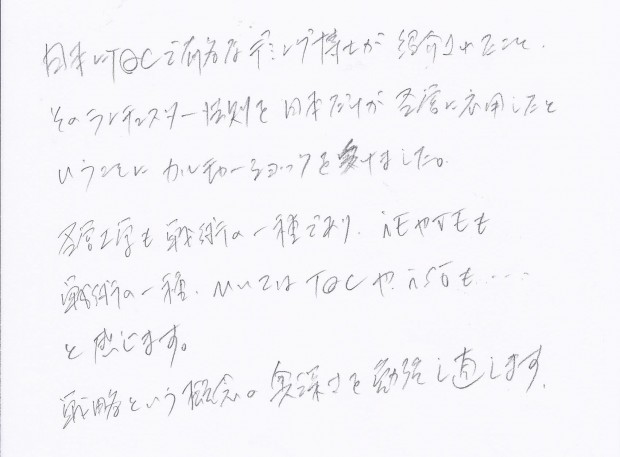 日本にTQCで有名なデミング博士が紹介されたこと、
そのランチェスター法則を日本だけが経営に応用したと
いうことに カルチャーショックを受けました。
経営工学も戦術の一種であり、iEやVEも
戦術の一種、ひいてはTQCや、iSOも・・・・
と感じます。
戦略という概念の奥深さを勉強し直します。